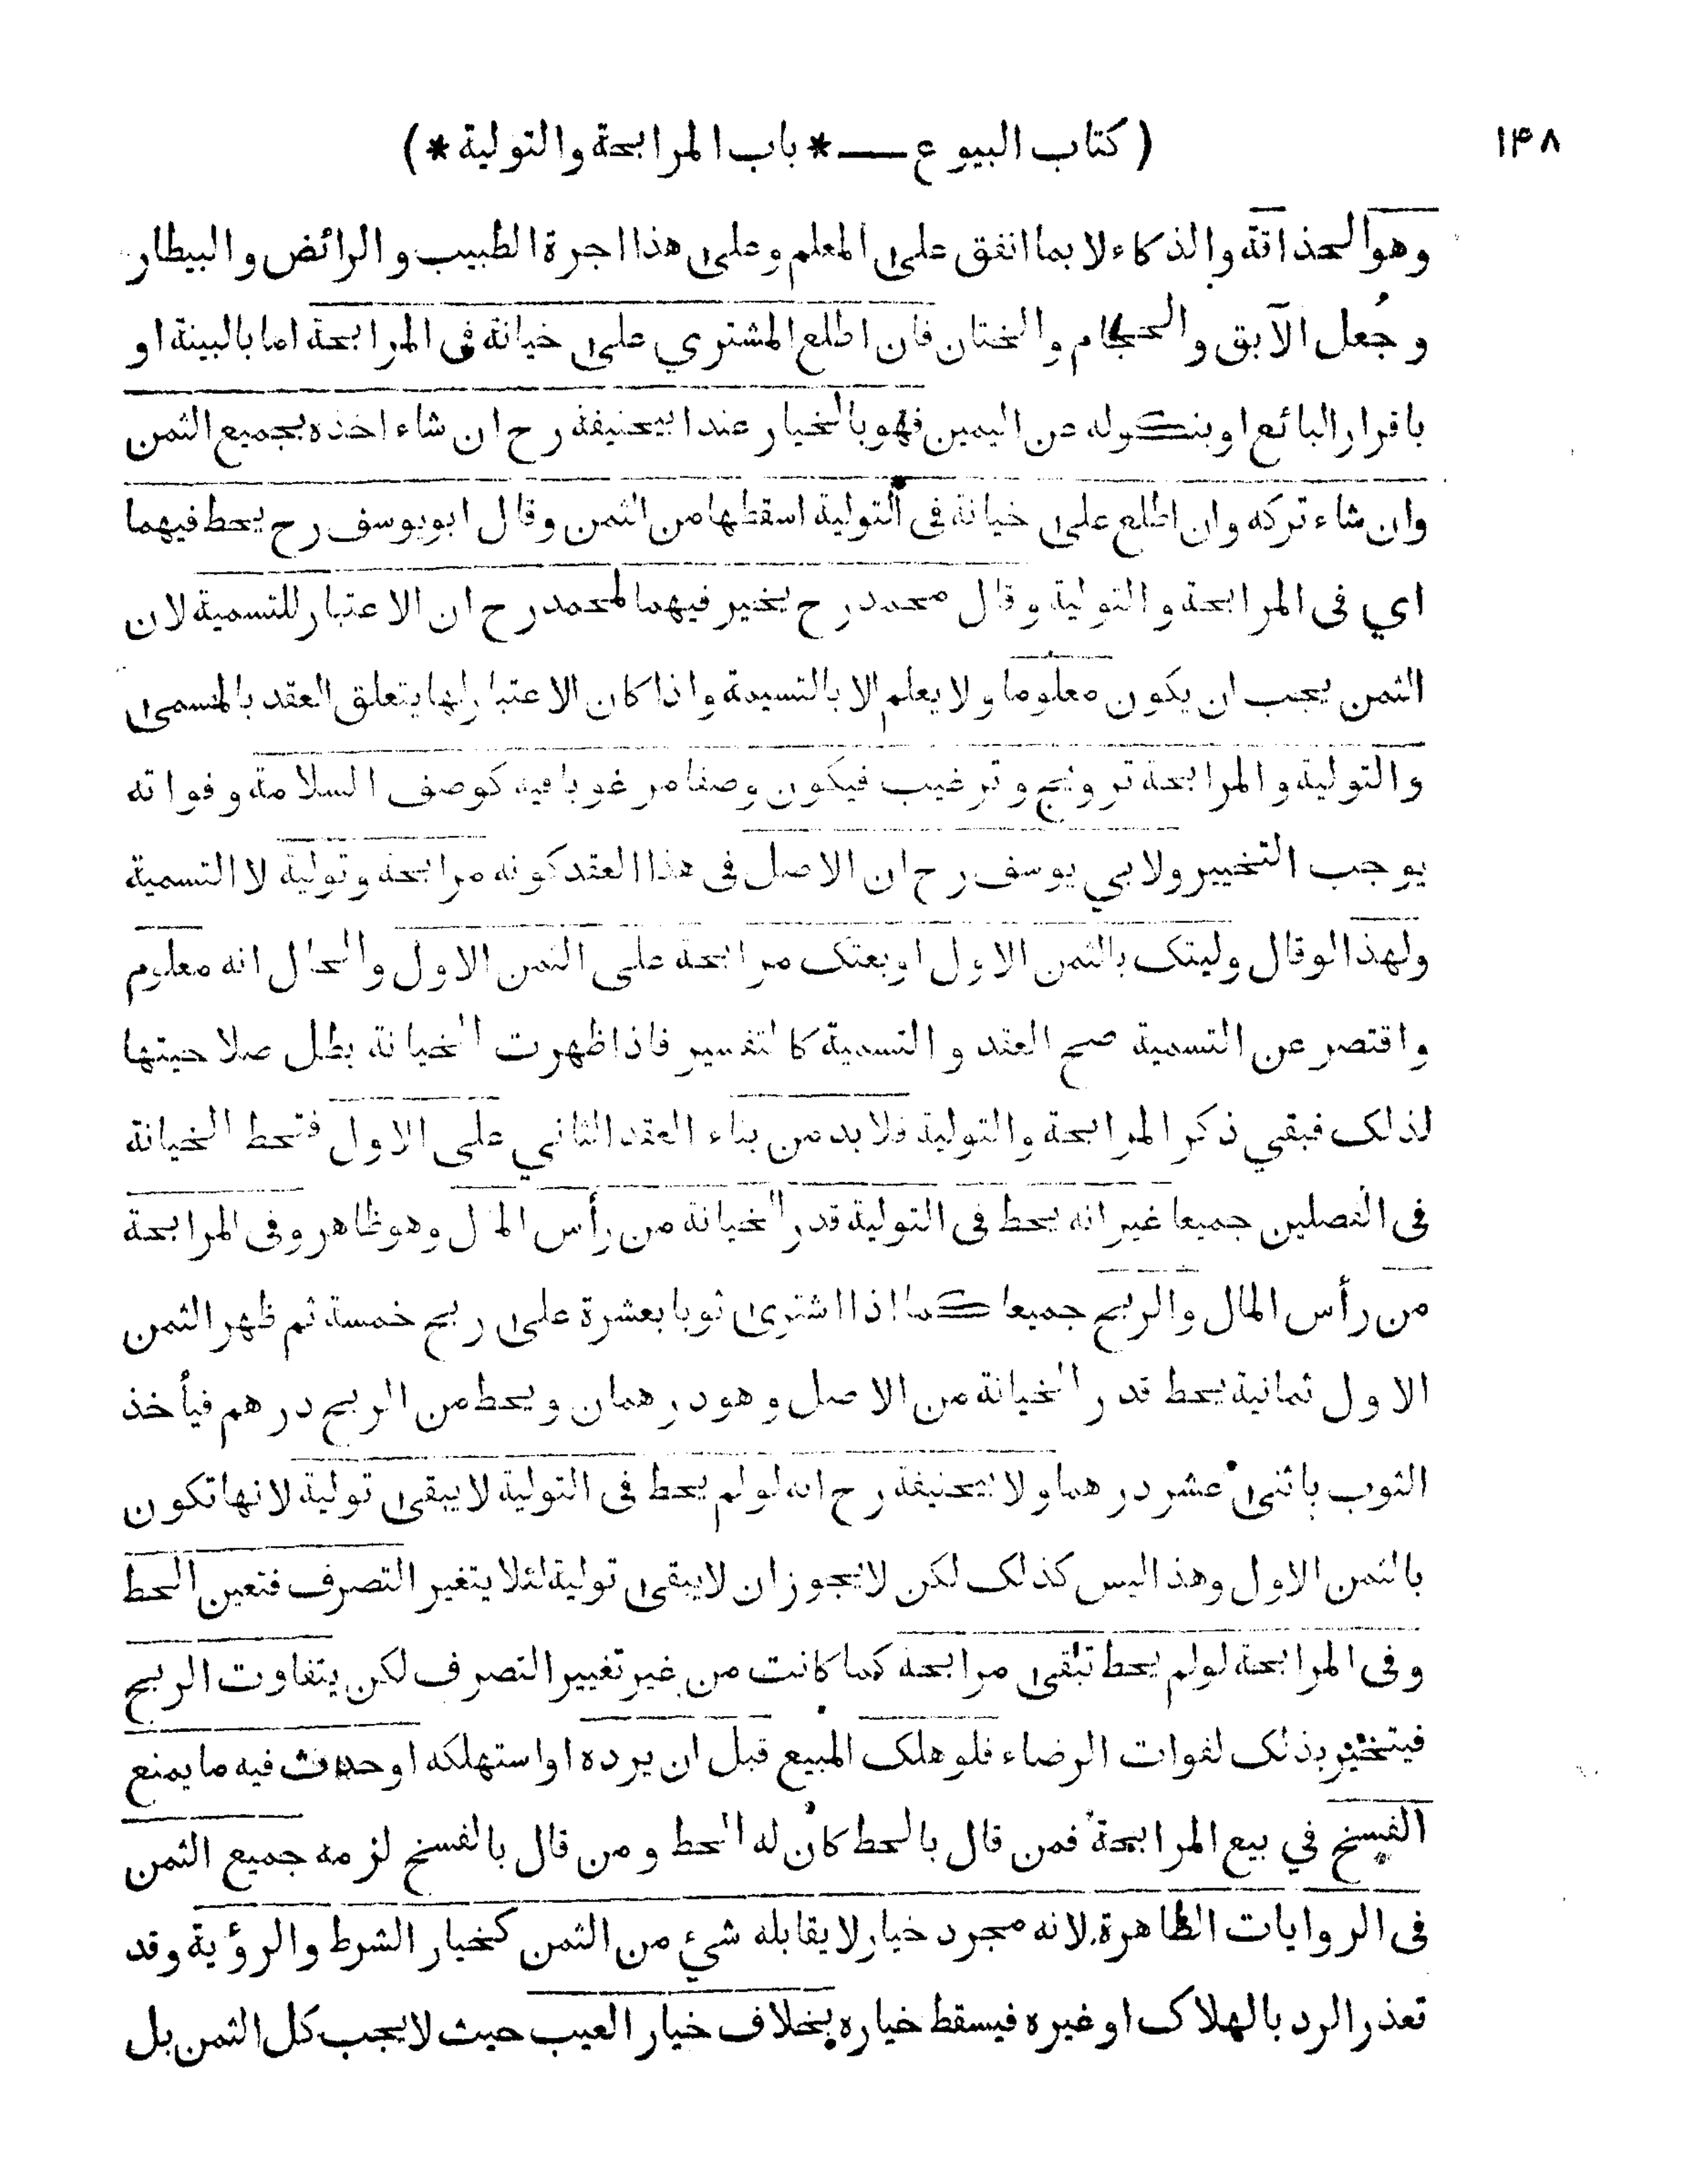 ١٤٨
( كتاب البيوع ـــ * باب المرابحة والتولية * )
وهو الحذاقة والذكاء لا بما انفق على المعلم وعلى هذا اجرة الطبيب والرائض والبيطار
وجُعل الآبق والحجام والختان فان اطلع المشتري على خيانة فى المرابحة اما بالبينة او
باقرار البائع او بنكوله عن اليمين فهو بالخيار عند ابيحنيفة رح ان شاء اخذه بجميع الثمن
وان شاء تركه وان اطلع على خيانة فى التولية اسقطها من الثمن وقال ابو يوسف رح يحط فيهما
اي فى المرابحة والتولية وقال محمد رح يخير فيهما لمحمد رح ان الاعتبار للتسمية لان
الثمن يجب ان يكون معلوما ولا يعلم الا بالتسمية واذا كان الاعتبار لها يتعلق العقد بالمسمى
والتولية والمرابحة ترويج وترغيب فيكون وصفا مرغوبا فيه كوصف السلامة وفواته
يوجب التخيير ولابي يوسف رح ان الاصل فى هذا العقد كونه مرابحة وتولية لا التسمية
ولهذا لو قال وليتك بالثمن الاول او بعتك مرابحة على الثمن الاول والحال انه معلوم
واقتصر عن التسمية صح العقد والتسمية كالتفسير فاذا ظهرت الخيانة بطل صلاحيتها
لذلك فبقي ذكر المرابحة والتولية فلابد من بناء العقد الثاني على الاول فتحط الخيانة
فى الفصلين جميعا غير انه يحط فى التولية قدر الخيانة من رأس المال وهو ظاهر وفى المرابحة
من رأس المال والربح جميعا كما اذا اشترى ثوبا بعشرة على ربح خمسة ثم ظهر الثمن
الاول ثمانية يحط قدر الخيانة من الاصل وهو درهمان ويحط من الربح درهم فيأخذ
الثوب باثنى عشر درهما ولابيحنيفة رح انه لو لم يحط فى التولية لا يبقى تولية لانها تكون
بالثمن الاول وهذا ليس كذلك لكن لا يجوز ان لا يبقى تولية لئلا يتغير التصرف فتعين الحط
وفى المرابحة لو لم يحط تبقى مرابحة كما كانت من غير تغيير التصرف لكن يتفاوت الربح
فيتخير بذلك لفوات الرضاء فلو هلك المبيع قبل ان يرده او استهلكه او حدث فيه ما يمنع
الفسخ في بيع المرابحة فمن قال بالحط كان له الحط ومن قال بالفسخ لزمه جميع الثمن
فى الروايات الظاهرة لانه مجرد خيار لا يقابله شيء من الثمن كخيار الشرط والرؤية وقد
تعذر الرد بالهلاك او غيره فيسقط خياره بخلاف خيار العيب حيث لا يجب كل الثمن بل